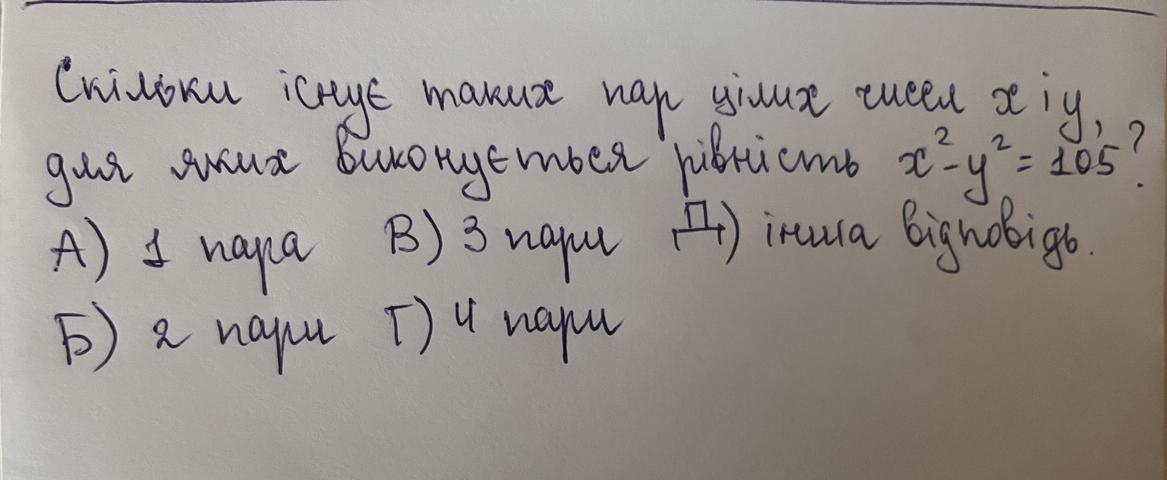 Скільки існує таких пар цілих чисел x і y,
для яких виконується рівність x² - y² = 105?
А) 1 пара В) 3 пари Д) інша відповідь.
Б) 2 пари Г) 4 пари